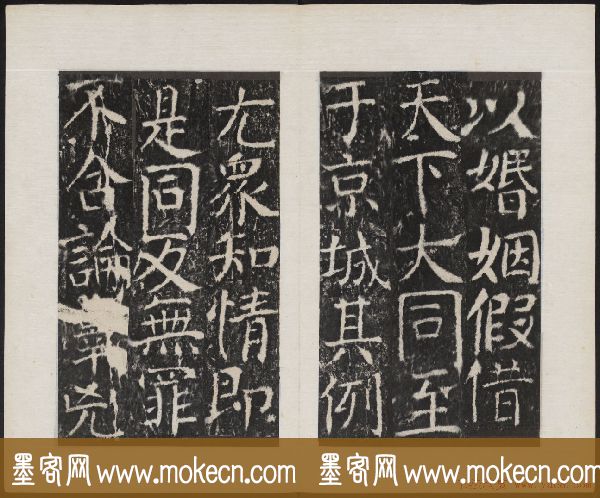 以婚姻假借
天下大同至
于京城其例
尤衆和情即
是同及無罪
不合論事兇
墨客网 www.mokecn.com
墨客网 www.mokecn.com